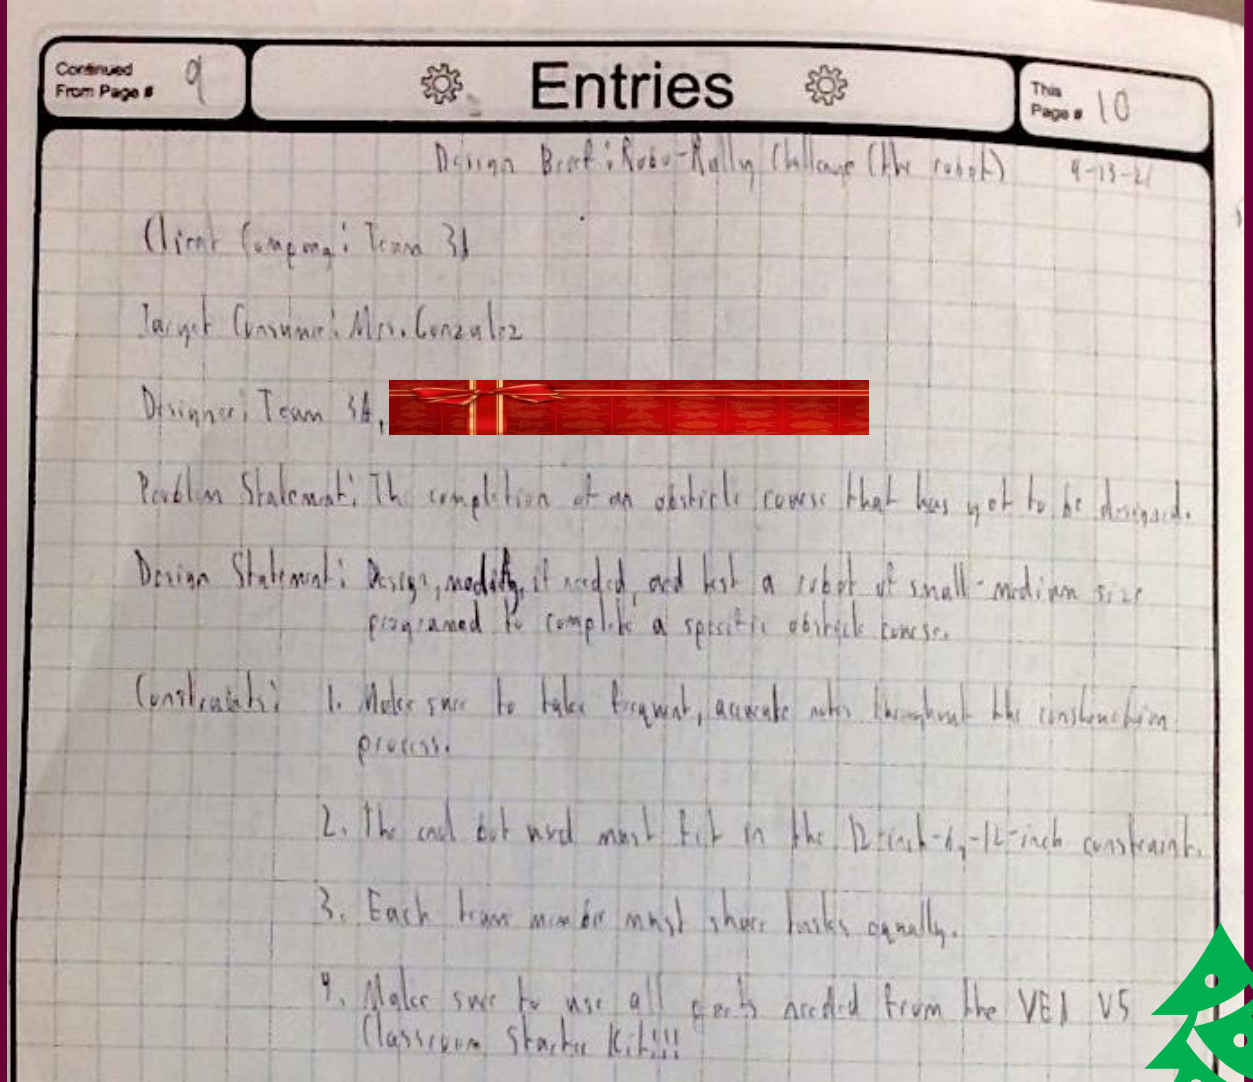 Continued
From Page #
9
Entries
This
Page #
10
Design Brief: Robo-Rally Challenge (the robot)
9-13-21
Client Company: Team 3A
Target Consumer: Mrs. Gonzalez
Designer: Team 3A,
Problem Statement: The completion of an obsticle course that has yet to be designed.
Design Statement: Design, modify, if needed, and test a robot of small-medium size
programed to complete a specific obsticle course.
Constraints: 1. Make sure to take frequent, accurate notes throughout the construction
process.
2. The end bot used must fit in the 12-inch-by-12-inch constraint.
3. Each team member must share tasks equally.
4. Make sure to use all parts needed from the VEX V5
Classroom Starter Kit!!!